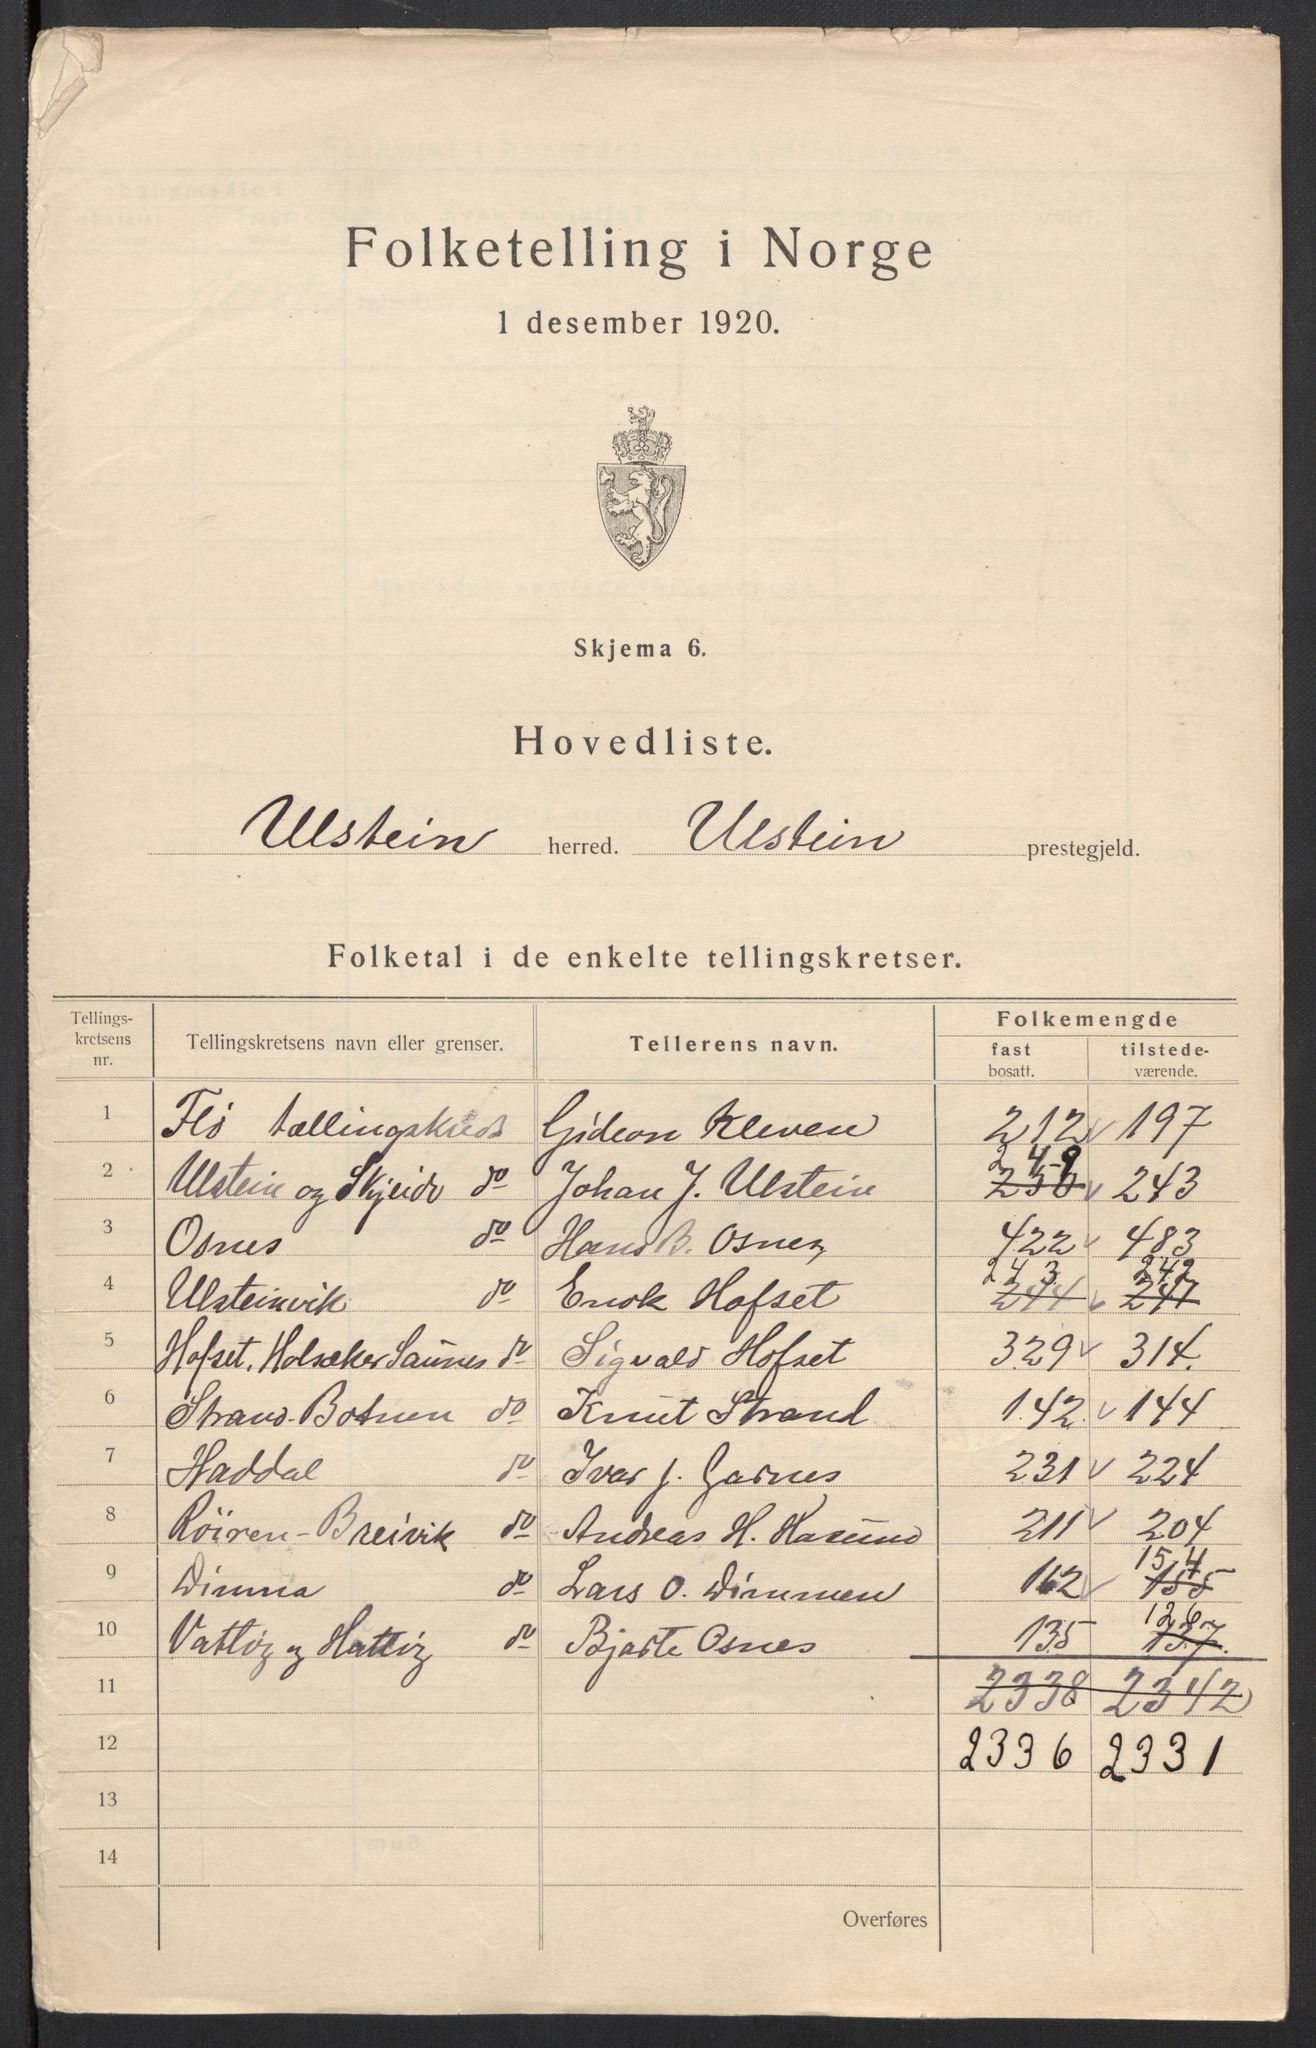 Folketelling i Norge
1 desember 1920.
Skjema 6.
Hovedliste.
Ulstein herred. Ulstein prestegjeld.
Folketal i de enkelte tellingskretser.
Tellings-kretsens nr. Tellingskretsens navn eller grenser. Tellerens navn. Folkemengde fast bosatt. tilstede-værende.
1 Flö tællingskreds Gideon Kleven 212 197
2 Ulstein og Skjeide do Johan J. Ulstein 250 249 243
3 Osnes do Hans B. Osnes 422 483
4 Ulsteinvik do Enok Hofset 244 243 247 242
5 Hofset, Holsæker Saunes do Sigvald Hofset 329 314.
6 Strand-Botnen do Knut Strand 142 144
7 Haddal do Ivar J. Garnes 231 224
8 Röiren-Breivik do Andreas H. Hasund 211 204
9 Dimna do Lars O. Dimmen 162 155 154
10 Vattöy og Hattöy do Bjarte Osnes 135 137. 126
11 2338 2342
12 2336 2331
13
14
Overføres